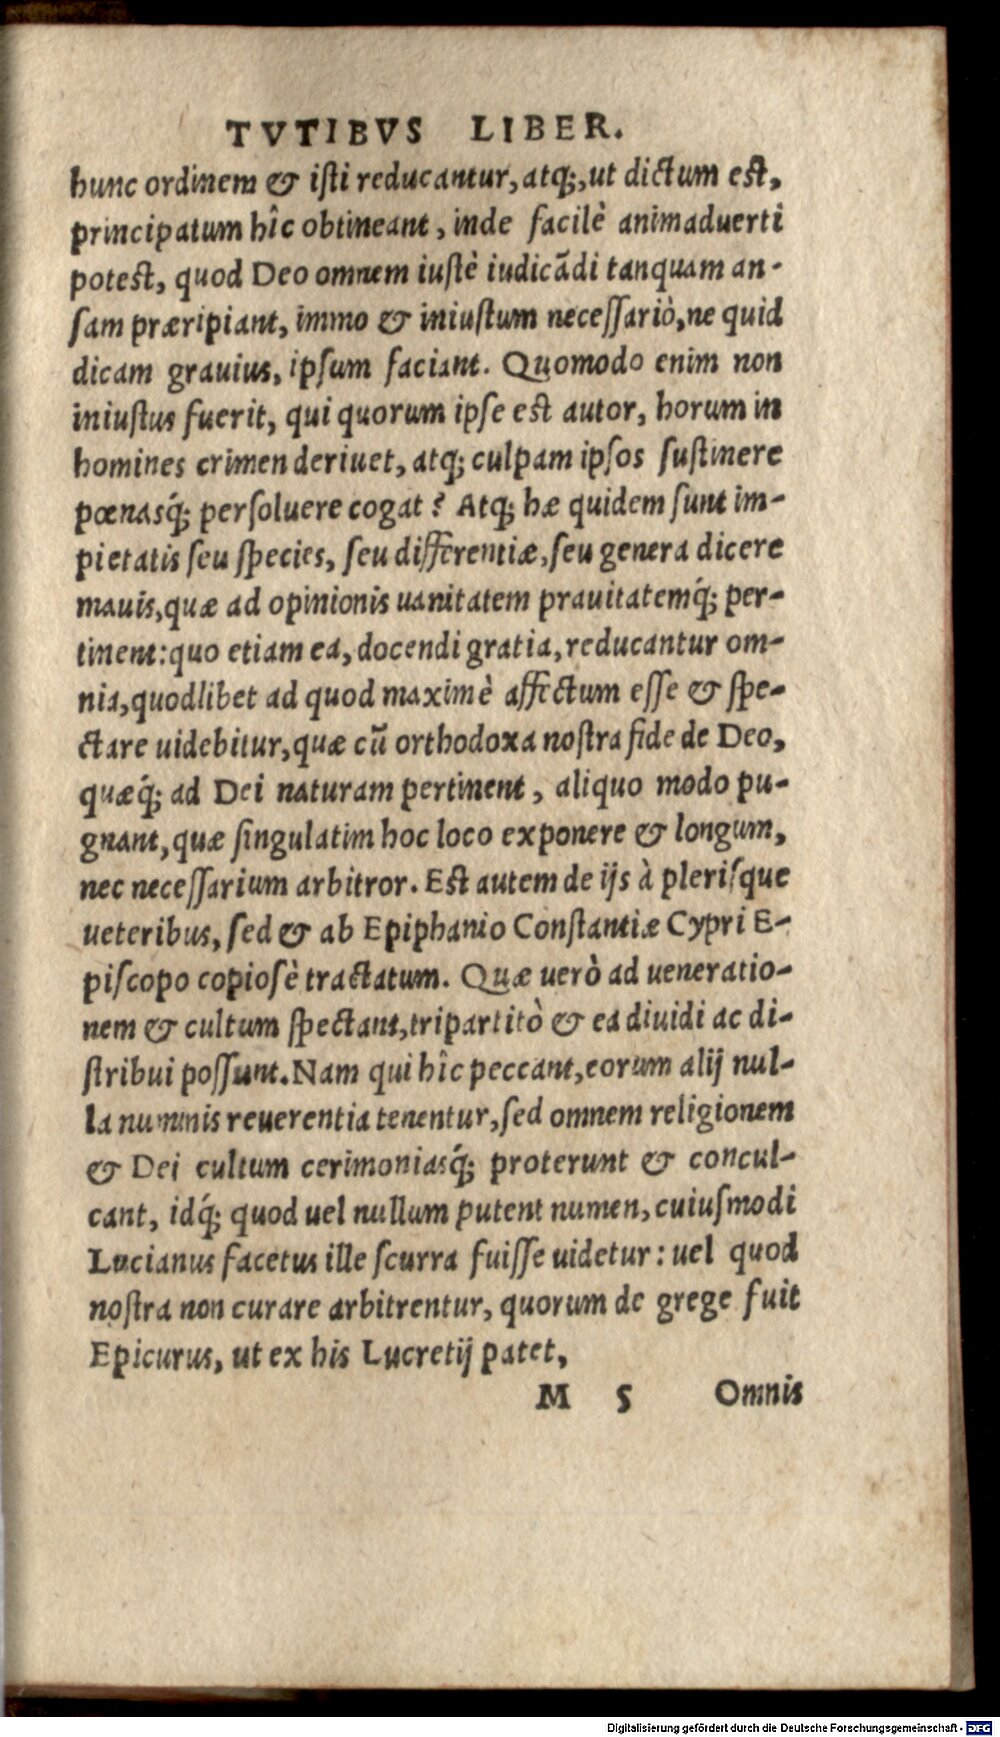 TVTIBVS LIBER.
hunc ordinem & isti reducantur, atq;, ut dictum est,
principatum hîc obtineant, inde facilè animaduerti
potest, quod Deo omnem iustè iudicãdi tanquam an-
sam præripiant, immo & iniustum necessariò, ne quid
dicam grauius, ipsum faciant. Quomodo enim non
iniustus fuerit, qui quorum ipse est autor, horum in
homines crimen deriuet, atq; culpam ipsos sustinere
pœnasq́; persoluere cogat? Atq; hæ quidem sunt im-
pietatis seu species, seu differentiæ, seu genera dicere
mauis, quæ ad opinionis uanitatem prauitatemq́; per-
tinent: quo etiam ea, docendi gratia, reducantur om-
nia, quodlibet ad quod maximè affectum esse & spe-
ctare uidebitur, quæ cũ orthodoxa nostra fide de Deo,
quæq́; ad Dei naturam pertinent, aliquo modo pu-
gnant, quæ singulatim hoc loco exponere & longum,
nec necessarium arbitror. Est autem de ijs à plerisque
ueteribus, sed & ab Epiphanio Constantiæ Cypri E-
piscopo copiosè tractatum. Quæ uerò ad ueneratio-
nem & cultum spectant, tripartitò & ea diuidi ac di-
stribui possunt. Nam qui hîc peccant, eorum alij nul-
la numinis reuerentia tenentur, sed omnem religionem
& Dei cultum cerimoniasq́; proterunt & concul-
cant, idq́; quod uel nullum putent numen, cuiusmodi
Lucianus facetus ille scurra fuisse uidetur: uel quod
nostra non curare arbitrentur, quorum de grege fuit
Epicurus, ut ex his Lucretij patet,
M 5 Omnis
Digitalisierung gefördert durch die Deutsche Forschungsgemeinschaft - DFG